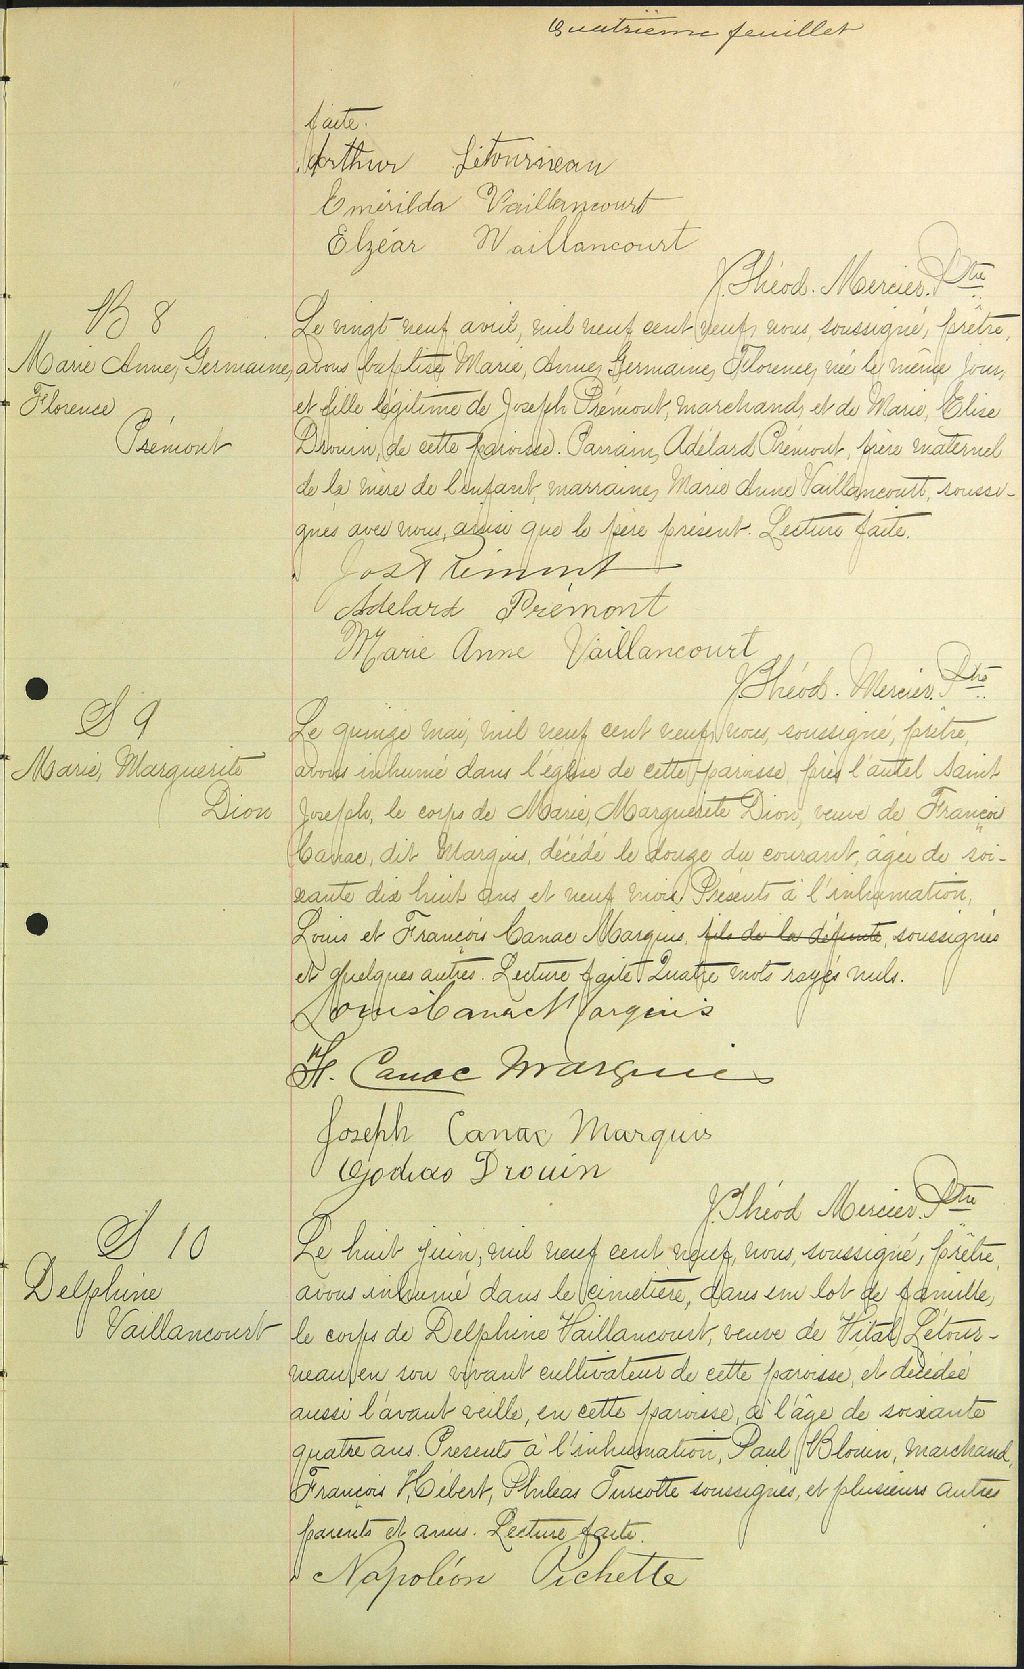 Quatrième feuillet
faite.
Arthur Létourneau
Emérilda Vaillancourt
Elzéar Vaillancourt
J. Théod. Mercier. Ptre
B 8
Marie Anne, Germaine,
Florence
Prémont
Le vingt neuf avril, mil neuf cent neuf, nous, soussigné, prêtre,
avons baptisé Marie, Anne, Germaine, Florence, née le même jour,
et fille légitime de Joseph Prémont, marchand, et de Marie, Elise
Drouin, de cette paroisse. Parrain, Adélard Prémont, frère maternel
de la mère de l'enfant, marraine, Marie Anne Vaillancourt, soussi-
gnés avec nous, ainsi que le père présent. Lecture faite.
Jos Prémont
Adelard Prémont
Marie Anne Vaillancourt
J. Théod. Mercier. Ptre
S 9
Marie, Marguerite
Dion
Le quinze mai, mil neuf cent neuf, nous, soussigné, prêtre,
avons inhumé dans l'église de cette paroisse, près l'autel Saint
Joseph, le corps de Marie, Marguerite Dion, veuve de François
Canac, dit Marquis, décédé le douze du courant, âgée de soi-
xante dix huit ans et neuf mois. Présents à l'inhumation,
Louis et François Canac Marquis, fils de la défunte, soussignés
et quelques autres. Lecture faite. Quatre mots rayés nuls.
Louis Canac Marquis
F. Canac Marquis
Joseph Canac Marquis
Drouin
J. Théod Mercier. Ptre
S 10
Delphine
Vaillancourt
Le huit juin, mil neuf cent neuf, nous, soussigné, prêtre,
avons inhumé dans le cimetière, dans un lot de famille,
le corps de Delphine Vaillancourt, veuve de Vital Létour-
neau, en son vivant cultivateur de cette paroisse, et décédée
aussi l'avant veille, en cette paroisse, à l'âge de soixante
quatre ans. Presents à l'inhumation, Paul Blouin, marchand,
François Hébert, Philéas Turcotte soussignés, et plusieurs autres
parents et amis. Lecture faite.
Napoléon Pichette